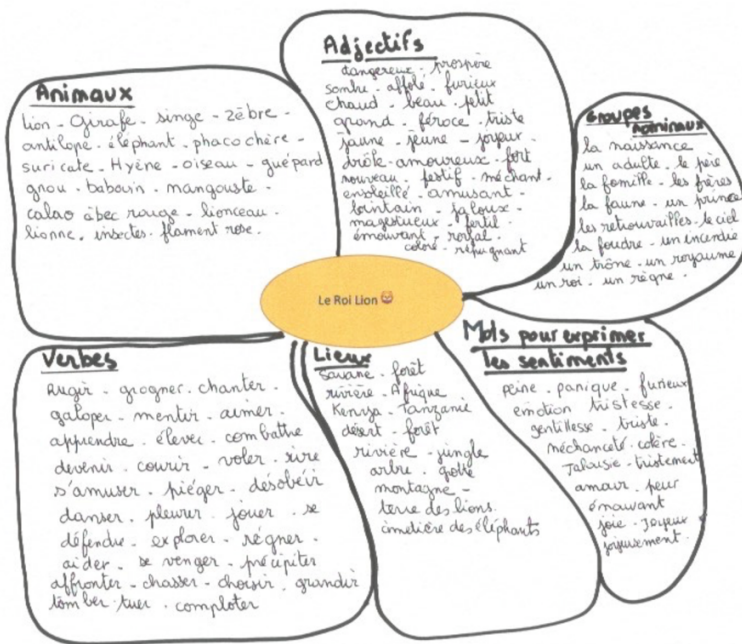 Animaux
lion - Girafe - singe - zèbre -
antilope - éléphant - phacochère -
suricate - Hyène - oiseau - guépard
gnou - babouin - mangouste -
calao à bec rouge - lionceau -
lionne - insectes - flament rose -
Adjectifs
dangereux - prospère
sombre - affolé - furieux
chaud - beau - petit
grand - féroce - triste
jaune - jeune - joyeux -
drôle - amoureux - fort
nouveau - festif - méchant -
ensoleillé - amusant -
lointain - jaloux -
magestueux - fertil -
émouvant - royal -
coloré - répugnant
Groupes
nominaux
la naissance
un adulte - le père
la famille - les frères
la faune - un prince
les retrouvailles - le ciel
la foudre - un incendie
un trône - un royaume
un roi - un règne -
Le Roi Lion
Verbes
Rugir - grogner - chanter -
galoper - mentir - aimer -
apprendre - élever - combattre
devenir - courir - voler - vivre
s'amuser - piéger - désobéir
danser - pleurer - jouer - se
défendre - explorer - régner -
aider - se venger - précipiter
affronter - chasser - choisir - grandir
tomber - tuer - comploter
Lieux
savane - forêt
rivière - Afrique
Kenya - Tanzanie
désert - forêt
rivière - jungle
arbre - grotte
montagne -
terre des lions
cimetière des éléphants
Mots pour exprimer
les sentiments
peine - panique - furieux
émotion - tristesse -
gentillesse - triste -
méchanceté - colère -
Jalousie - tristement
amour - peur
émouvant
joie - Joyeux
joyeusement -